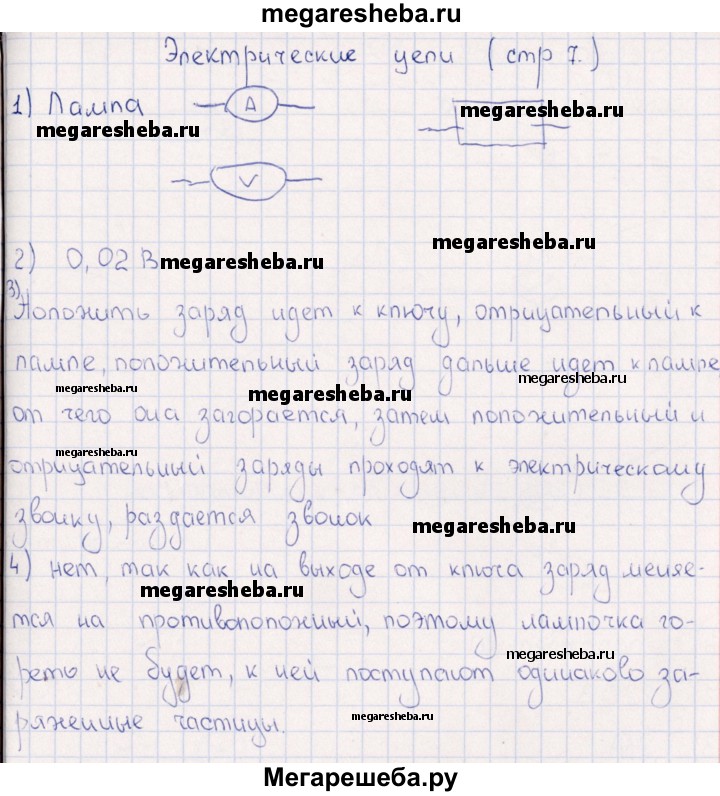 megaresheba.ru
Электрические цепи (стр 7.)
1) Лампа A
megaresheba.ru megaresheba.ru
V
megaresheba.ru
2) 0,02 В megaresheba.ru
3)
Положить заряд идет к ключу, отрицательный к
лампе, положительный заряд дальше идет к лампе
megaresheba.ru megaresheba.ru megaresheba.ru
от чего она загорается, затем положительный и
megaresheba.ru
отрицательный заряды проходят к электрическому
звонку, раздается звонок megaresheba.ru
4) нет, так как на выходе от ключа заряд меняе-
megaresheba.ru
тся на противоположный, поэтому лампочка го-
megaresheba.ru
реть не будет, к ней поступают одинаково за-
ряженные частицы. megaresheba.ru
Мегарешеба.ру